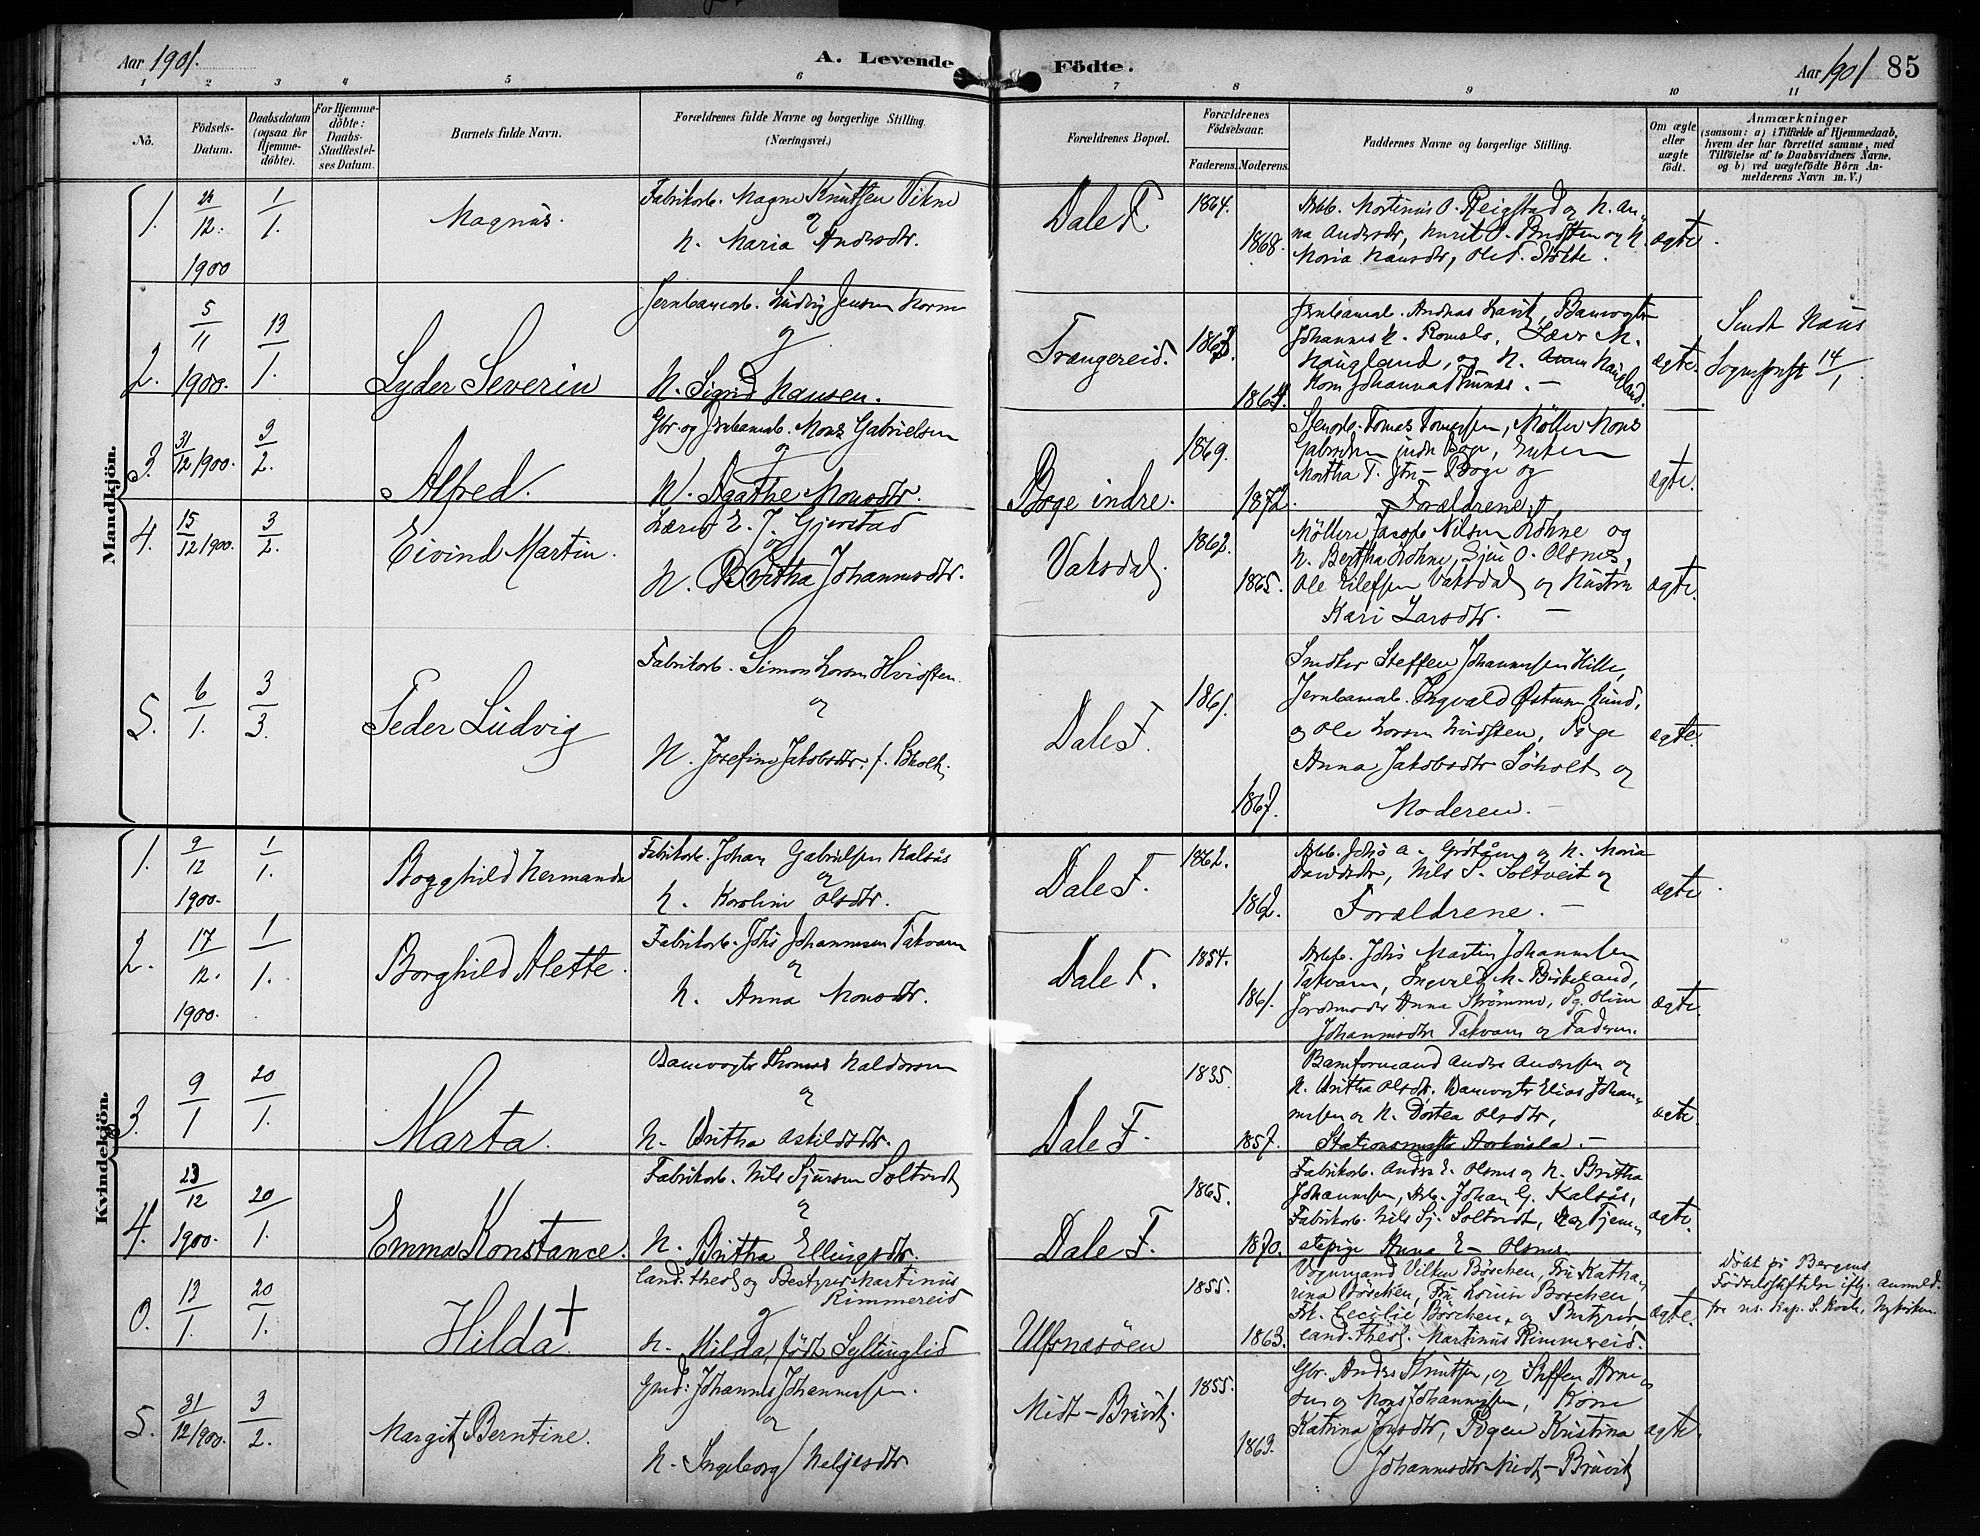 Aar 1901.
A. Levende Födte.
Aar 1901 85
1 2 3 4 5 6 7 8 9 10 11
No.
Födsels-
Datum.
Daabsdatum
(ogsaa for
Hjemme-
döbte).
For Hjemme-
döbte:
Daabs-
Stadfæstel-
ses Datum.
Barnets fulde Navn.
Forældrenes fulde Navne og borgerlige Stilling.
(Næringsvei.)
Forældrenes Bopæl.
Forældrenes
Födselsaar.
Faderens. Moderens.
Faddernes Navne og borgerlige Stilling.
Om ægte
eller
uægte
födt.
Anmærkninger
(saasom: a) i Tilfælde af Hjemmedaab,
hvem der har forrettet samme, med
Tilföielse af to Daabsvidners Navne,
og b) ved uægtefödte Börn An-
melderens Navn m. V.)
Mandkjön.
1. 12. 1900 1/1. Magnus.
Fabrikarb. Magne Knutsen Vikne
og
H. Maria Andersdtr.
Dale F. 1864. 1868.
Arbb. Mortinus O. Reigstad og H. An-
na Andersdtr,
Maria Hansdtr,
ægte.
2. 5/11 1900. 13/1. Lyder Severin
Jernbanearb. Ludvig Jensen
og
H. Sigrid Hansen.
Trængereid. 1864.
Jernbanearb. Andreas Banevogter
Johannes Romslo, Lærer M.
Haugland, og H. Haugland.
Kone Johanna
ægte.
Sendt
Sogneprest 14/1
3. 31/12 1900. 3/2. Alfred.
Gbr. og Jernbanearb. Mons Gabrielsen
og
H. Agathe Monsdtr.
Boge indre. 1869. 1872.
Tomas Tomassen, Möller Mons
Gabrielsen indre Boge, Enken
Martha T. Boge og
Forældrene.
ægte.
4. 15/12 1900. 3/2. Eivind Martin.
Lærer E. J. Gjerstad
og
H. Britha Johannesdtr.
Vaksdal. 1862. 1865.
Möllere Jacob Nilsen Löhne og
H. Bertha Löhne, Sjur O. Olsnes,
Ole Eilefsen Vaksdal og Hustru
Kari Larsdtr. —
ægte.
5. 6/1. 3/3. Peder Ludvig
Fabrikarb. Simon Larsen Hvidsten.
og
H. Josefine Jakobsdtr.
Dale F. 1861. 1867.
Snedker Steffen Johannessen Hille,
Jernbanearb. Ingvald
og Ole Larsen Hvidsten, Pige
Anna Jakobsdtr Söholt og
Moderen. —
ægte.
Kvindekjön.
1. 9/12 1900. 1/1. Borghild Hermanda
Fabrikarb. Johan Gabrielsen Kalsås
og
H. Karoline Olsdtr.
Dale F. 1862. 1862.
Arbb. Johs A. og H. Maria
Davidsdtr, Nils S. Soltveit og
Forældrene. —
ægte.
2. 17/12. 1900. 1/1. Borghild Alette.
Fabrikarb. Johs Johannesen Takvam
og
H. Anna Monsdtr.
Dale F. 1854. 1861.
Arbb. Johs Martin Johannessen
Takvam, M. Birkeland,
Jordemoder Anna Strömme, Pg. Oline
Johannesdtr Takvam og Faderen.
ægte.
3. 9/1 20/1. Marta.
Banevogter Thomas Haldorsen
og
H. Britha Askildsdtr.
Dale F. 1835. 1857.
Baneformand Anders Andersen og
H. Britha Olsdtr. Banevogter Elias Johan-
nessen og H. Dortea Olsdtr,
Stationsmester —
ægte.
4. 23/12 1900. 20/1. Emma Konstance.
Fabrikarb. Nils Sjursen Soltveit
og
H. Britha Ellingsdtr.
Dale F. 1865. 1870.
Fabrikarb. Anders E. Olsnes og H. Britha
Johannessen, Arb. Johan G. Kalsås,
Fabrikarb. Nils Sj. Soltveit, og Tjene-
stepige Anna E. Olsnes.
ægte.
0. 13/1. 20/1. Hilda. +
Cand. theol. og Bestyrer Martinus
Rimmereid
og
H. Hilda, född Syltinglid
Ulfsnesöen 1855. 1863.
Vognmand Vilken Börschen, Fru Katha-
rina Börschen, Fru Louise Börschen
Frk. Cecilie Börschen, og Bestyrer
cand. theol. Martinus Rimmereid.
ægte.
Döbt på Bergens
Födselsstiftelse ifg. anmeld.
fra res. kap. S. Koch, Nykirken.
5. 31/12 1900. 3/2. Margit Berntine.
Gmd. Johannes Johannessen.
og
H. Ingeborg Heljesdtr
Midt-Bruvik. 1855. 1863.
Gbr. Anders Knutsen, og Steffen Arne-
sen og Mons Johannessen, Kone
Katrina Jonsdtr, Pigen Kristina
Johannesdtr Midt-Bruvik
ægte.